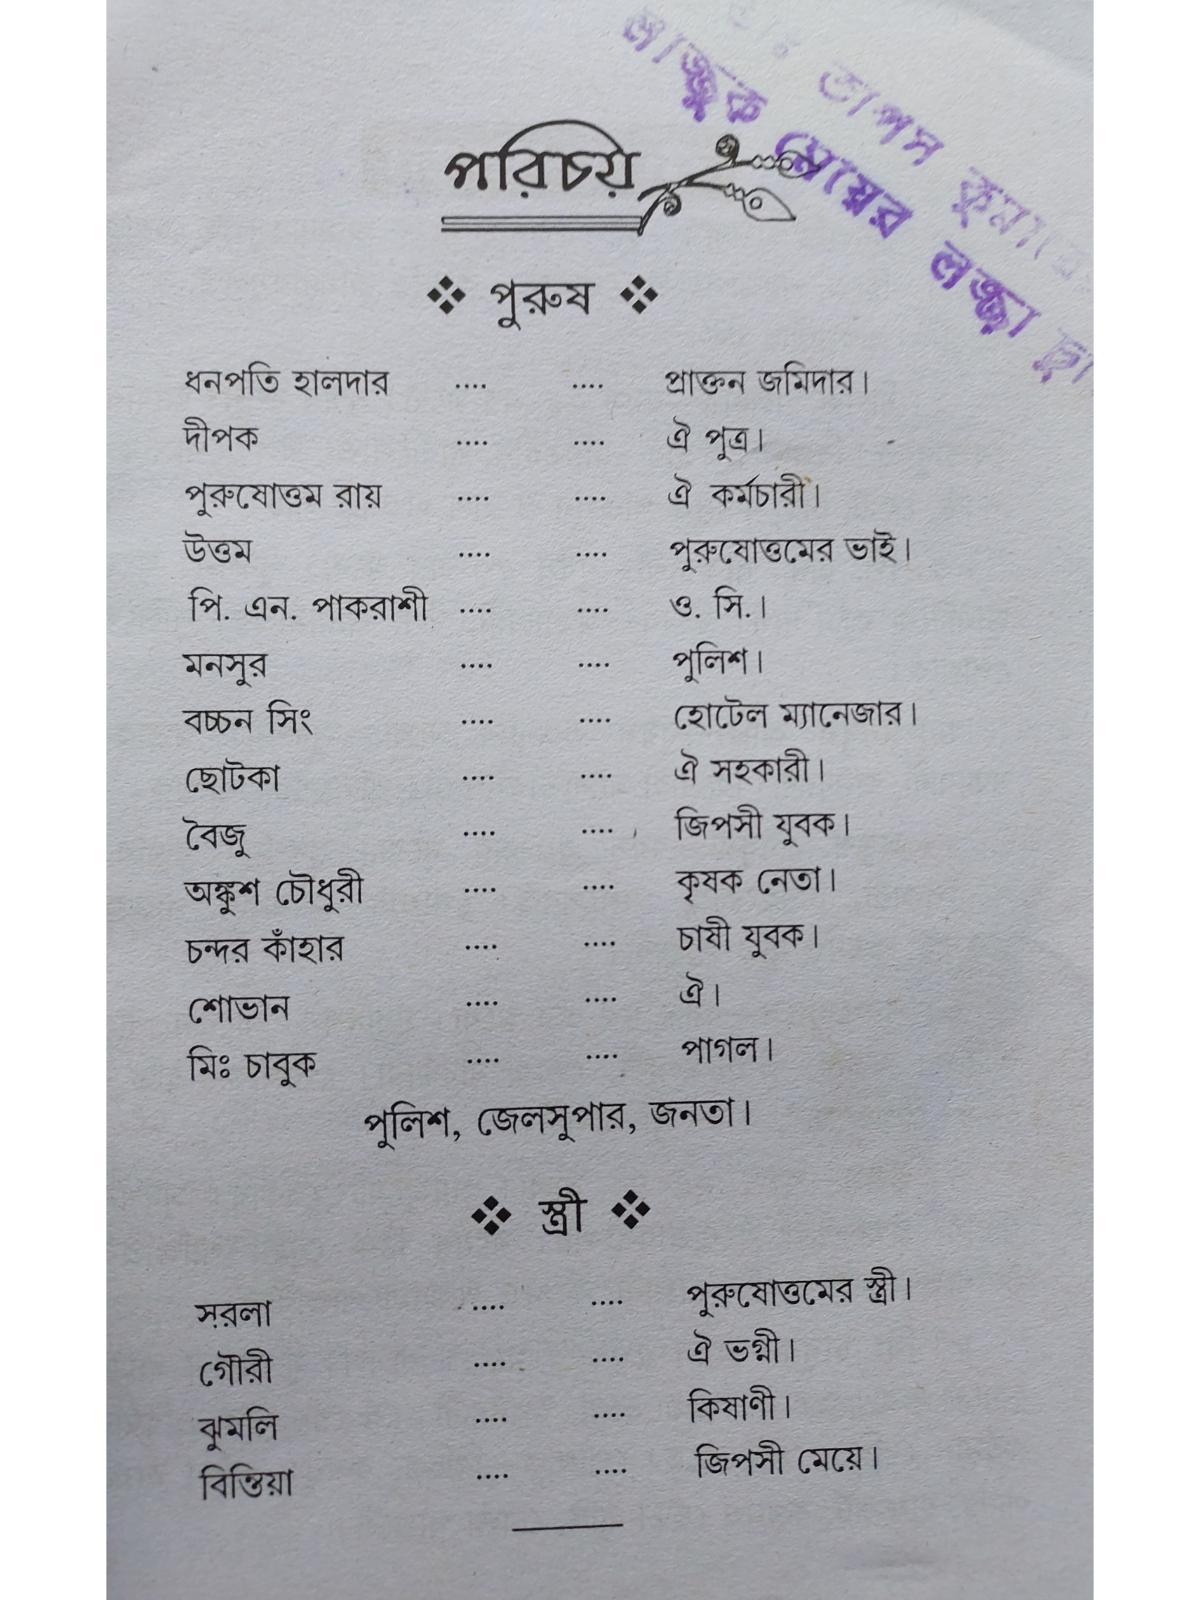 তাপস কুমারের
লাজ্জুক মেয়ের লজ্জা
পরিচয়
পুরুষ
ধনপতি হালদার .... .... প্রাক্তন জমিদার।
দীপক .... .... ঐ পুত্র।
পুরুষোত্তম রায় .... .... ঐ কর্মচারী।
উত্তম .... .... পুরুষোত্তমের ভাই।
পি. এন. পাকরাশী .... .... ও. সি.।
মনসুর .... .... পুলিশ।
বচ্চন সিং .... .... হোটেল ম্যানেজার।
ছোটকা .... .... ঐ সহকারী।
বৈজু .... .... জিপসী যুবক।
অঙ্কুশ চৌধুরী .... .... কৃষক নেতা।
চন্দর কাঁহার .... .... চাষী যুবক।
শোভান .... .... ঐ।
মিঃ চাবুক .... .... পাগল।
পুলিশ, জেলসুপার, জনতা।
স্ত্রী
সরলা .... .... পুরুষোত্তমের স্ত্রী।
গৌরী .... .... ঐ ভগ্নী।
ঝুমলি .... .... কিষাণী।
বিত্তিয়া .... .... জিপসী মেয়ে।